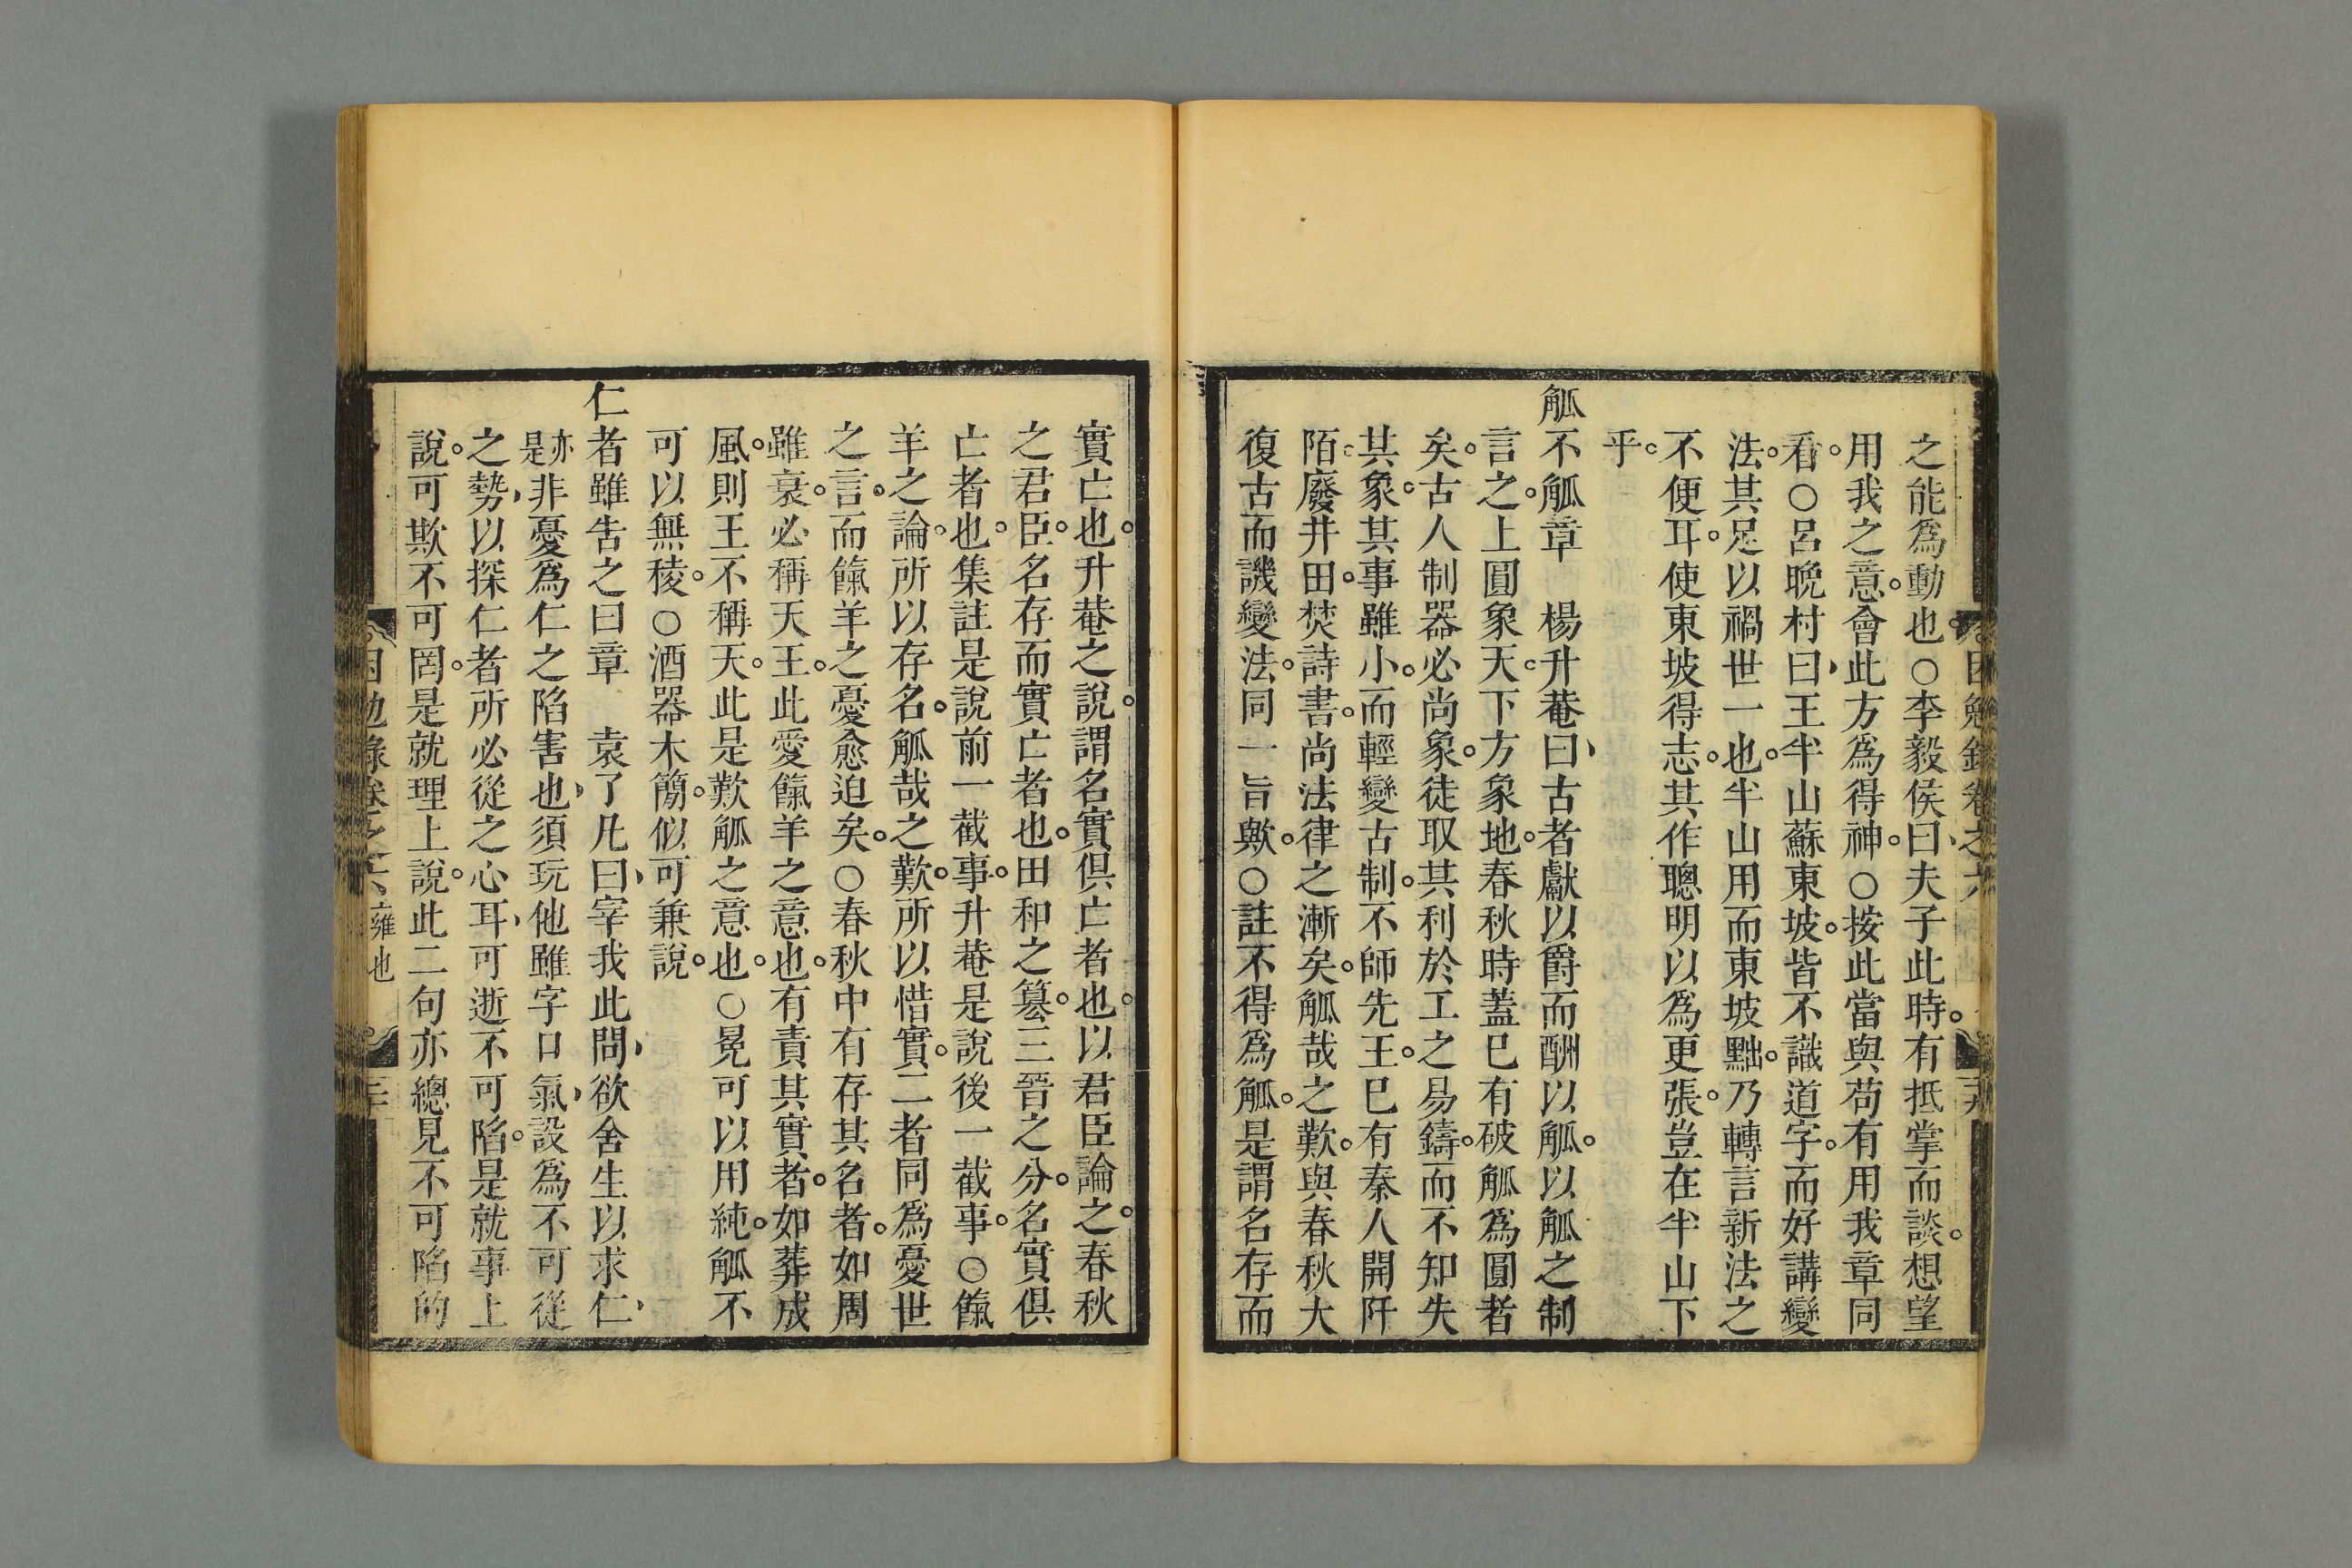 之能爲動也。○李毅侯曰、夫子此時。有抵掌而談。想望
用我之意。會此方爲得神。○按此當與苟有用我章同
看。○呂晩村曰、王半山蘇東坡。皆不識道字。而好講變
法。其足以禍世一也。半山用而東坡黜。乃轉言新法之
不便耳。使東坡得志。其作聰明以爲更張。豈在半山下
乎。
觚不觚章　楊升菴曰、古者獻以爵而酬以觚。以觚之制
言之。上圓象天。下方象地。春秋時蓋已有破觚爲圓者
矣。古人制器必尚象。徒取其利於工之易鑄。而不知失
其象。其事雖小。而輕變古制。不師先王。已有秦人開阡
陌。廢井田。焚詩書。尚法律之漸矣。觚哉之歎。與春秋大
復古而譏變法。同一旨歟。○註不得爲觚。是謂名存而
實亡也。升菴之說。謂名實俱亡者也。以君臣論之。春秋
之君臣。名存而實亡者也。田和之篡。三晉之分。名實俱
亡者也。集註是說前一截事。升菴是說後一截事。○餼
羊之論。所以存名。觚哉之歎。所以惜實。二者同爲憂世
之言。而餼羊之憂愈迫矣。○春秋中有存其名者。如周
雖衰。必稱天王。此愛餼羊之意也。有責其實者。如葬成
風。則王不稱天。此是歎觚之意也。○冕可以用純。觚不
可以無稜。○酒器木簡。似可兼說。
仁者雖告之曰章　袁了凡曰、宰我此問、欲舍生以求仁、
亦是非憂爲仁之陷害也、須玩他雖字口氣、設爲不可從
之勢、以探仁者所必從之心耳、可逝不可陷。是就事上
說。可欺不可罔。是就理上說。此二句亦總見不可陷的
雍也